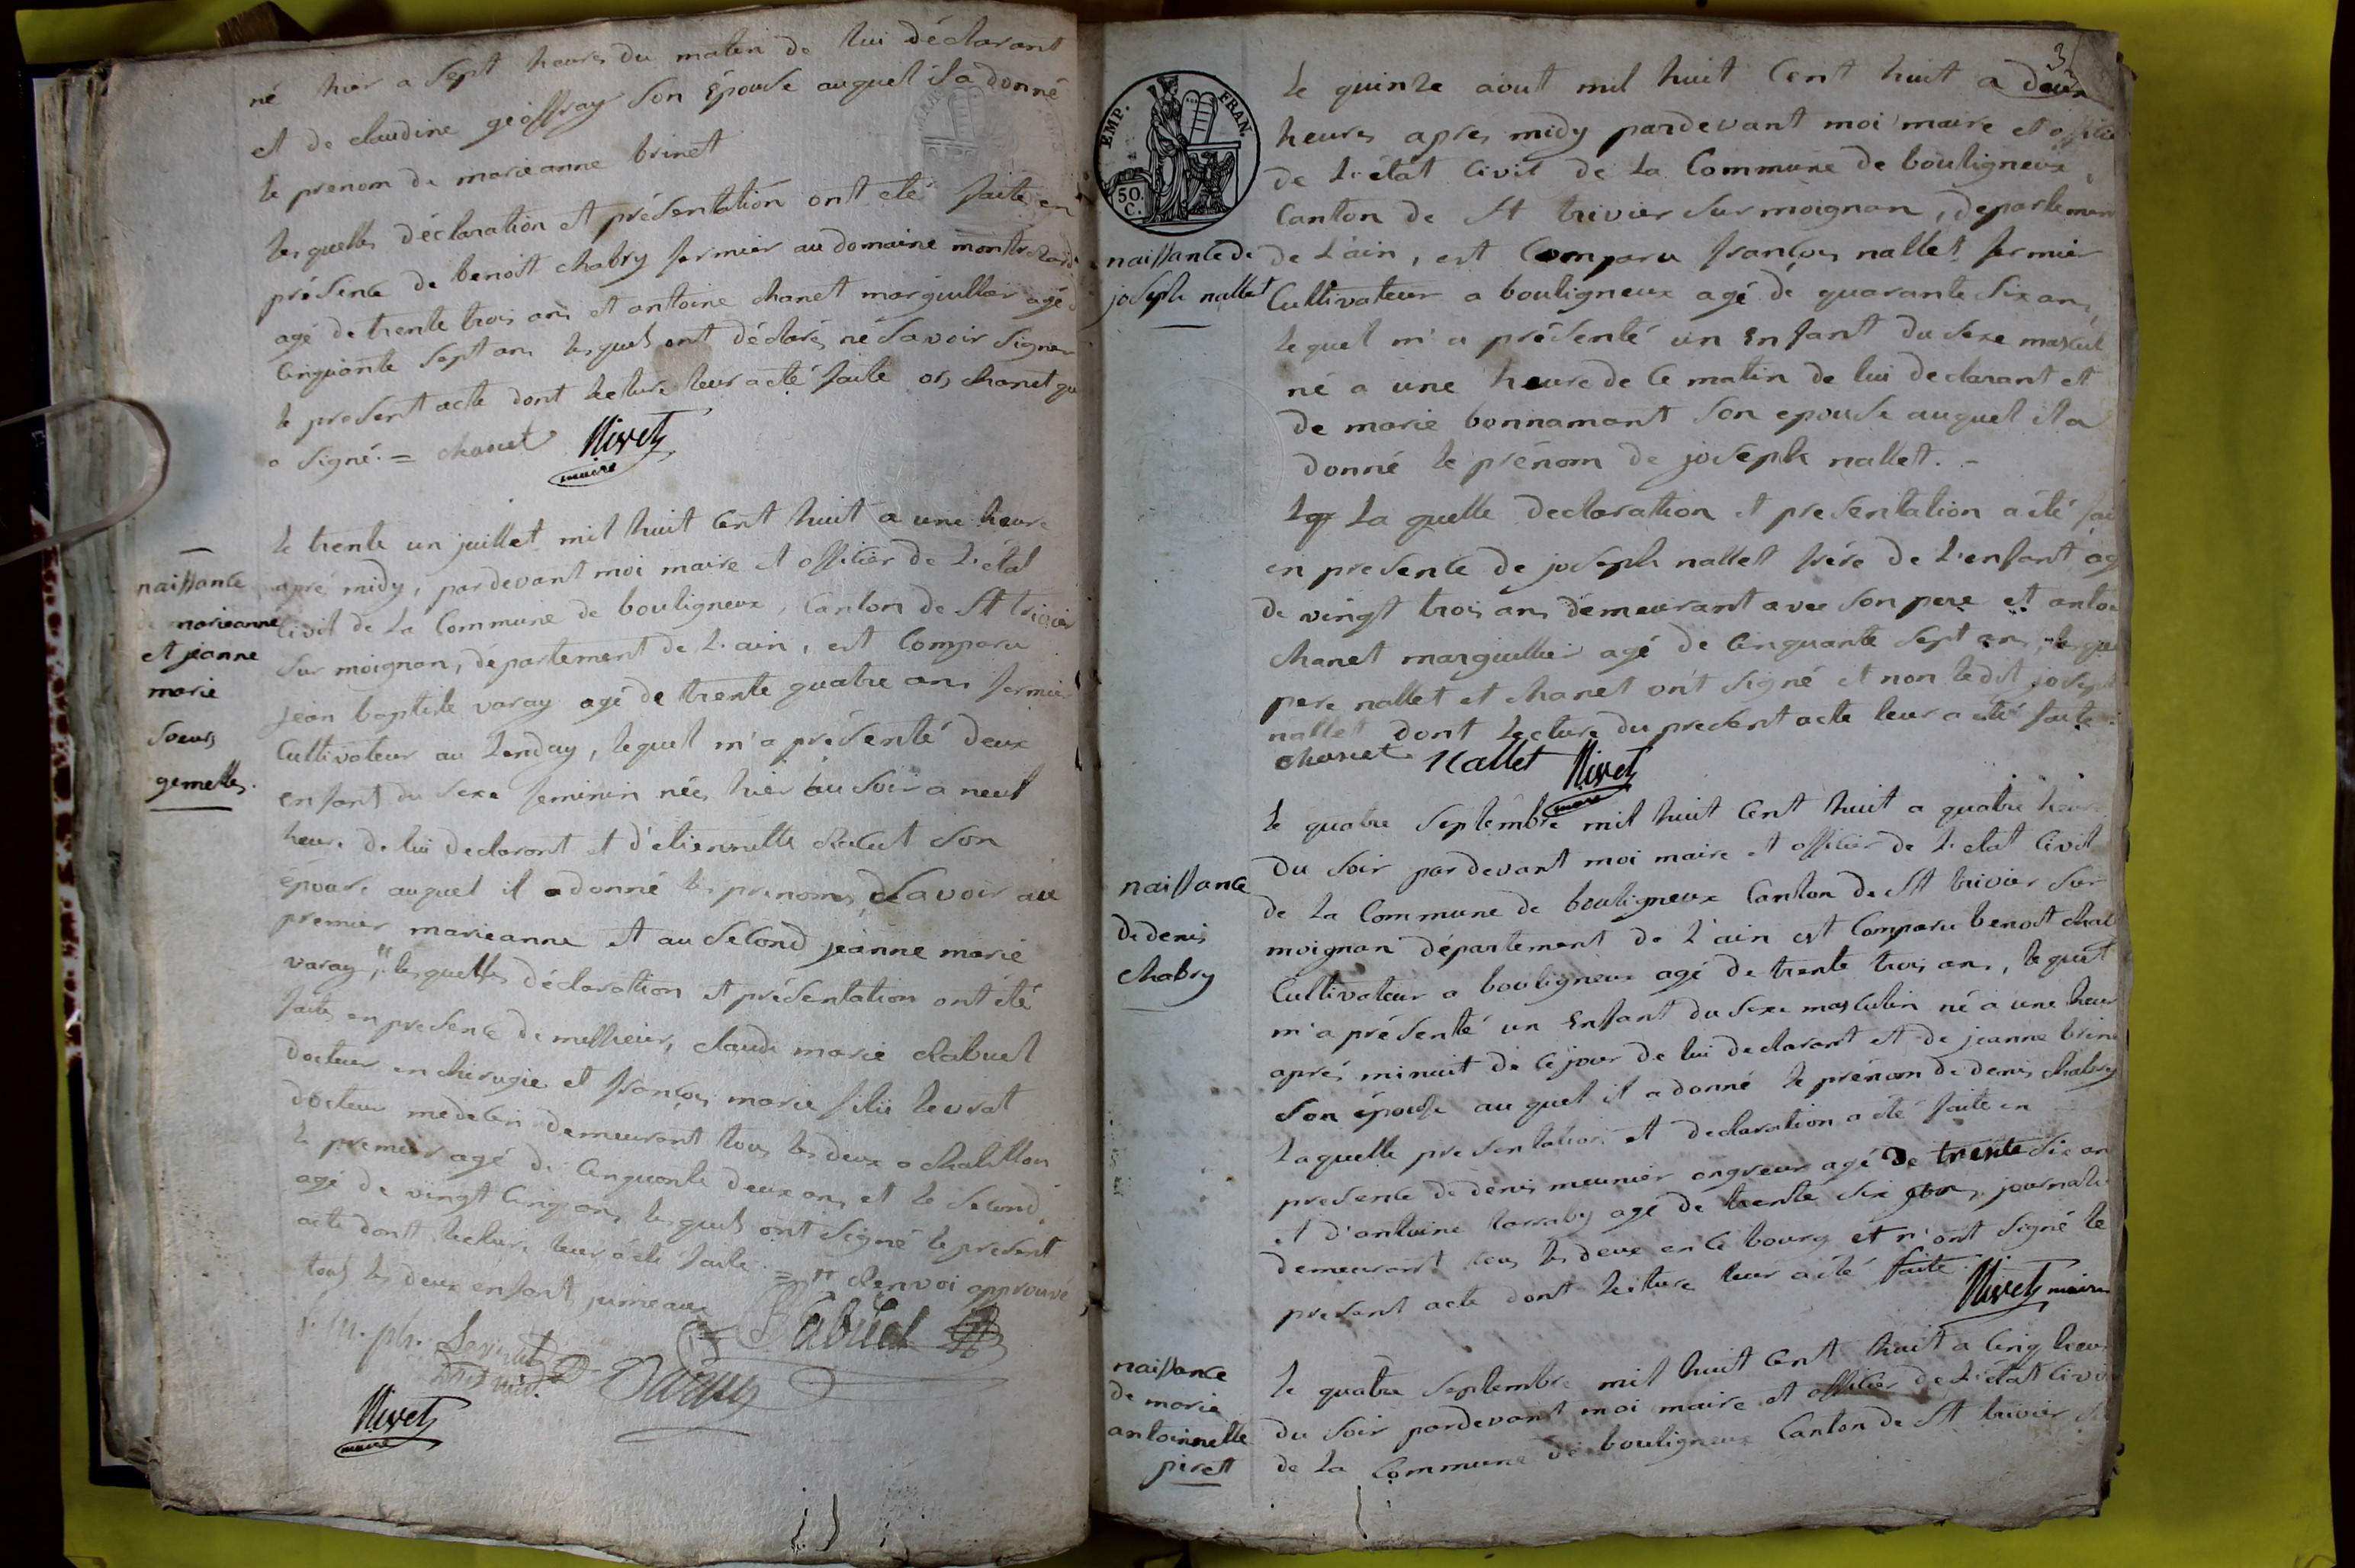 né hier a sept heures du matin de lui déclarant
et de claudine geoffray son épouse auquel il a donné
le prenom de marieanne brinet
lesquelles déclaration et présentation ont eté faite en
présence de benoit chabry fermier au domaine
agé de trente trois ans et antoine chanet marguillier agé
cinquante sept ans lesquels ont déclarés ne savoir signer
le present acte dont lecture leur a eté faite chanet qui
a signé. = chanet Nivet
maire
le trente un juillet mil huit cent huit a une heure
naissance
apré midy, pardevant moi maire et officier de l'état
de marieanne
civil de la commune de bouligneux, canton de St trivier
et jeanne
sur moignan, département de l'ain, est comparu
marie
jean baptiste varay agé de trente quatre ans fermier
soeurs
cultivateur au, lequel m'a présenté deux
gemelles.
enfant du sexe feminin nées hier au soir a neuf
heure de lui declarant et d'etiennette son
épouse auquel il a donné les prenoms, savoir au
premier marieanne et au second jeanne marie
varay," lesquelles déclaration et présentation ont été
faites en presence de messieurs, claude marie chabuel
docteur en chirugie et françois marie levrat
docteur medecin demeurant tous les deux a chatillon
le premier agé de cinquante deux ans et le second
agé de vingt cinq ans lesquels ont signé le present
acte dont lecture leur a eté faite = " renvoi approuvé
tous les deux enfant jumeaux
Nivet
maire
3
EMP. FRAN.
50.
C.
Le quinze aout mil huit cent huit a deux
heures apres midy pardevant moi maire et officier
de l'état civil de la commune de bouligneux,
canton de St trivier sur moignan, departement
naissance de
de l'ain, est comparu françois nallet fermier
joseph nallet
cultivateur a bouligneux agé de quarante six ans,
lequel m'a présenté un enfant du sexe mascul
né a une heure de ce matin de lui declarant et
de marie bonnamant son epouse auquel il a
donné le prénom de joseph nallet. -
La quelle declaration et presentation a été fai
en presence de joseph nallet frére de l'enfant ag
de vingt trois ans demeurant avec son pere et antoi
chanet marguillier agé de cinquante sept ans, lesque
pere nallet et chanet ont signé et non ledit joseph
nallet dont lecture du present acte leur a été faite.
chanet Nallet Nivet
maire
le quatre septembre mil huit cent huit a quatre heur
du soir pardevant moi maire et officier de l'etat civil
naissance
de la commune de bouligneux canton de St trivier sur
de denis
moignan département de l'ain est comparu benoit chab
chabry
cultivateur a bouligneux agé de trente trois ans, lequel
m'a présenté un enfant du sexe masculin né a une heur
aprés minuit de ce jour de lui declarant et de jeanne brin
son épouse au quel il a donné le prénom de denis chabry
laquelle presentation et declaration a été faite en
presence de denis meunier agé de trente six an
et d'antoine agé de trente six ans, journali
demeurant tous les deux en ce bourg et n'ont signé le
present acte dont lecture leur a été faite.
Nivet maire
naissance
le quatre septembre mil huit cent huit a cinq heur
de marie
du soir pardevant moi maire et officier de l'état civi
antoinnette
de la commune de bouligneux canton de St trivier
piret